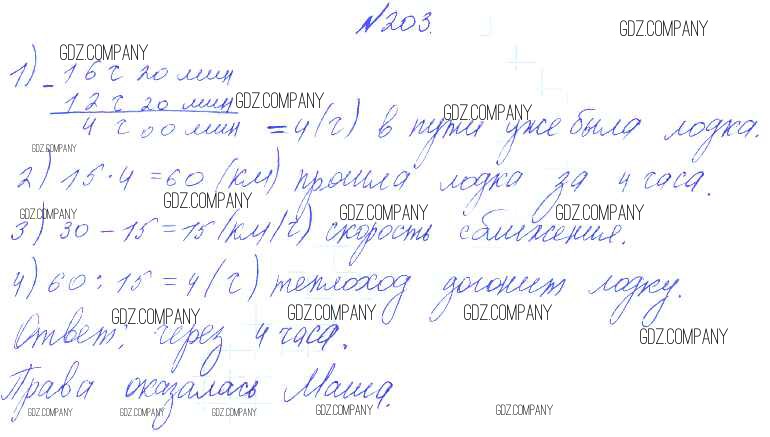 №203.
GDZ.COMPANY GDZ.COMPANY
1) - 16 ч 20 мин
12 ч 20 мин GDZ.COMPANY GDZ.COMPANY
4 ч 00 мин = 4 (ч) в пути уже была лодка.
GDZ.COMPANY
2) 15 · 4 = 60 (км) прошла лодка за 4 часа.
GDZ.COMPANY GDZ.COMPANY GDZ.COMPANY GDZ.COMPANY
3) 30 - 15 = 15 (км/ч) скорость сближения.
4) 60 : 15 = 4 (ч) теплоход догонит лодку.
GDZ.COMPANY GDZ.COMPANY GDZ.COMPANY
Ответ: через 4 часа. GDZ.COMPANY
Права оказалась Маша.
GDZ.COMPANY GDZ.COMPANY GDZ.COMPANY GDZ.COMPANY GDZ.COMPANY